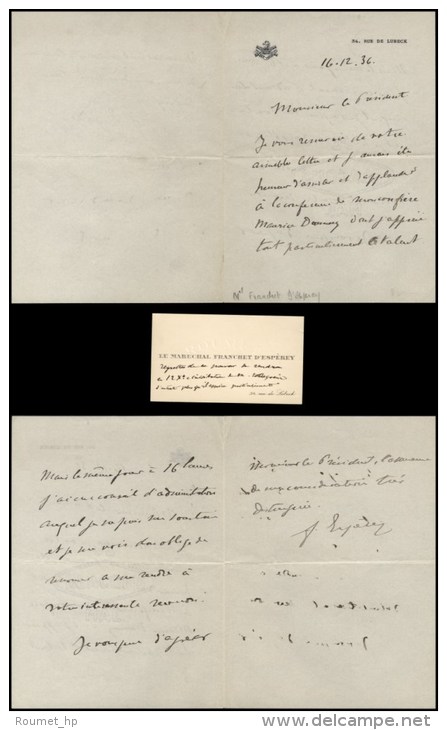 94, RUE DE LUBECK
16.12.36.
Monsieur le Président
Je vous remercie de votre
aimable lettre et j'aurais été
heureux d'assister et d'applaudir
à la conférence de mon confrère
Maurice Donnay dont j'apprécie
tout particulièrement le talent
Mal Franchet d'Esperey
LE MARÉCHAL FRANCHET D'ESPÉREY
regrette de ne pouvoir se rendre
à l'invitation de la
rue de Lubeck
Mais le même jour à 16 heures
j'ai un conseil d'administration
auquel je ne puis me soustraire
et je me vois donc obligé de
renoncer à me rendre à
votre intéressante réunion.
Je vous prie d'agréer
Monsieur le Président, l'assurance
de ma considération très
distinguée.
f. Espérey
Roumet_hp
www.delcampe.net